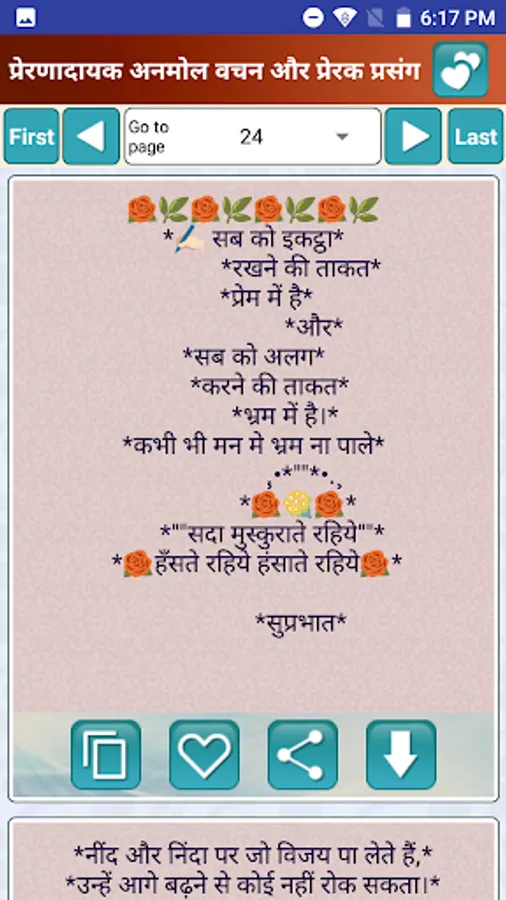 6:17 PM
प्रेरणादायक अनमोल वचन और प्रेरक प्रसंग
First
Go to page
24
Last
🌹🌿🌹🌿🌹🌿🌹🌿
*✍🏻 सब को इकट्ठा*
*रखने की ताकत*
*प्रेम में है*
*और*
*सब को अलग*
*करने की ताकत*
*भ्रम में है।*
*कभी भी मन मे भ्रम ना पाले*
¸.•*""*•.¸
*🌹🌼🌹*
*""सदा मुस्कुराते रहिये""*
*🌹हँसते रहिये हंसाते रहिये🌹*
*सुप्रभात*
*नींद और निंदा पर जो विजय पा लेते हैं,*
*उन्हें आगे बढ़ने से कोई नहीं रोक सकता।*